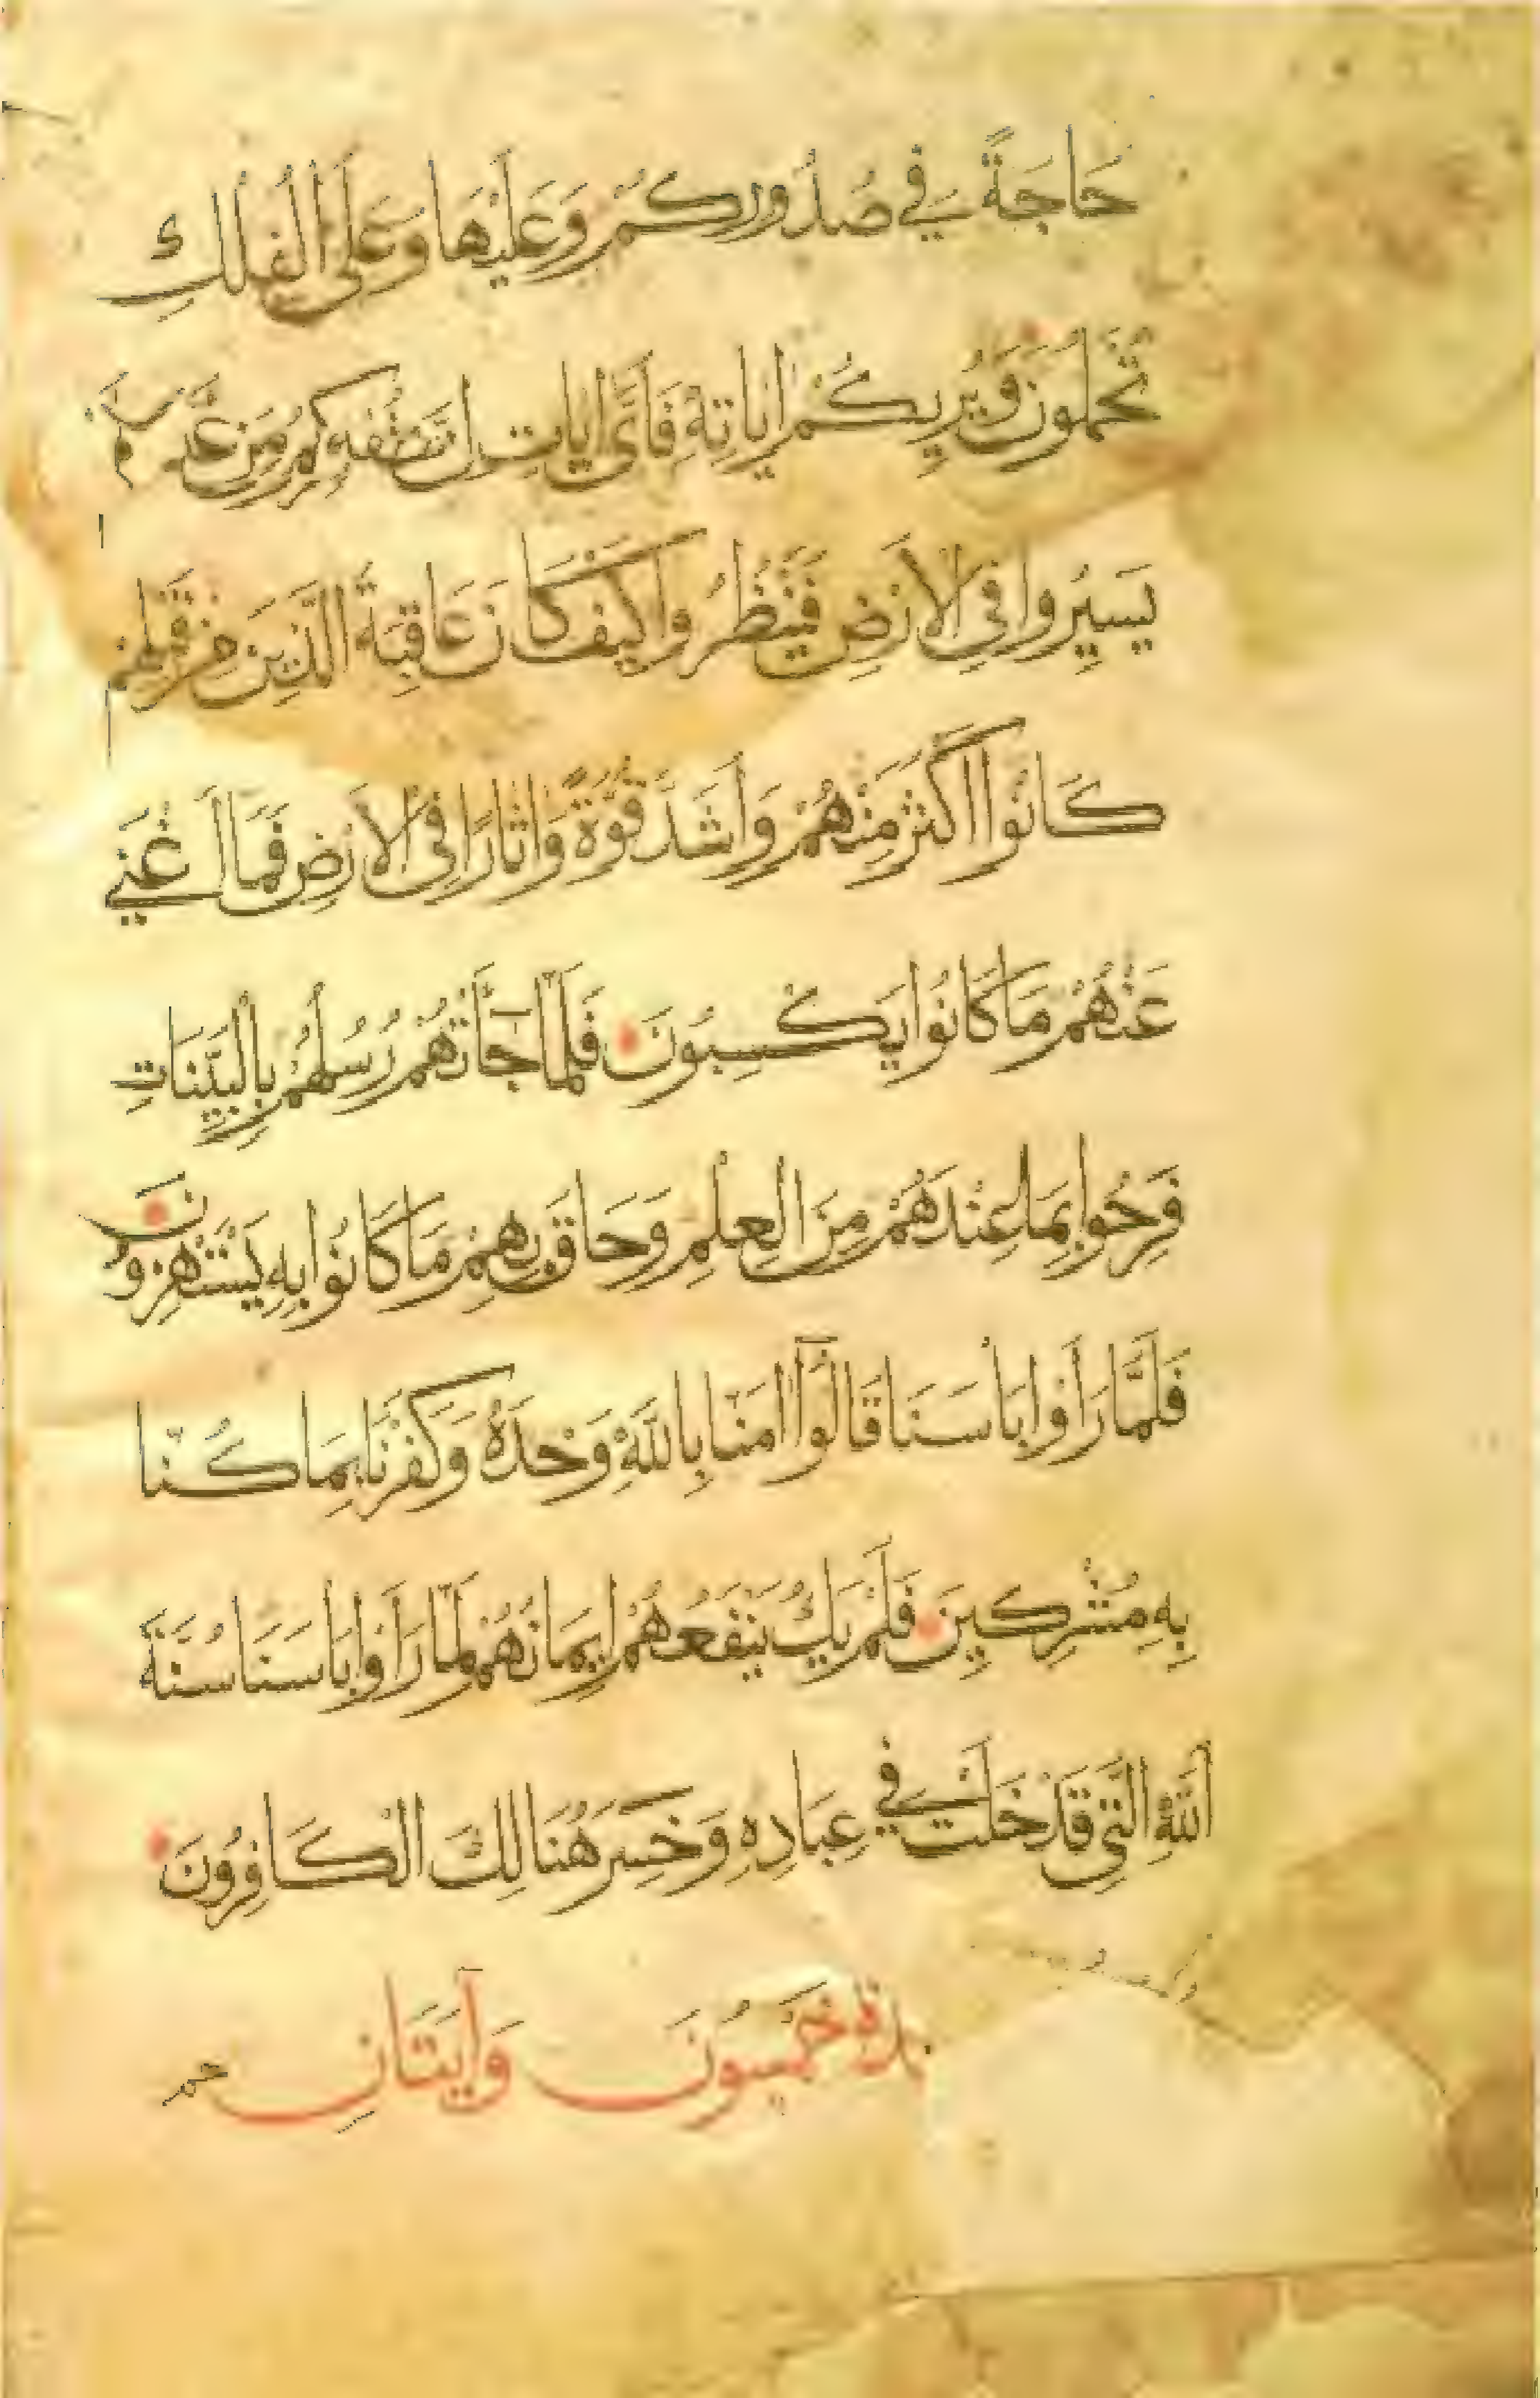 حَاجَةً فِي صُدُورِكُمْ وَعَلَيْهَا وَعَلَى الْفُلْكِ
تُحْمَلُونَ وَيُرِيكُمْ ايَاتِهِ فَأَىَّ ايَاتِ
يَسِيرُوا فِي الْأَرْضِ فَيَنْظُرُوا كَيْفَ كَانَ عَاقِبَةُ الَّذِينَ مِنْ قَبْلِهِمْ
كَانُوا أَكْثَرَ مِنْهُمْ وَأَشَدَّ قُوَّةً وَاثَارًا فِي الْأَرْضِ فَمَا أَغْنَى
عَنْهُمْ مَا كَانُوا يَكْسِبُونَ فَلَمَّا جَآَتْهُمْ رُسُلُهُمْ بِالْبَيِّنَاتِ
فَرِحُوا بِمَا عِنْدَهُمْ مِنَ الْعِلْمِ وَحَاقَ بِهِمْ مَا كَانُوا بِهِ يَسْتَهْزِؤُنَ
فَلَمَّا رَأَوْا بَأْسَنَا قَالُوا آمَنَّا بِاللَّهِ وَحْدَهُ وَكَفَرْنَا بِمَا كُنَّا
بِهِ مُشْرِكِينَ فَلَمْ يَكُ يَنْفَعُهُمْ إِيمَانُهُمْ لَمَّا رَأَوْا بَأْسَنَا سُنَّةَ
اللَّهِ الَّتِي قَدْ خَلَتْ فِي عِبَادِهِ وَخَسِرَ هُنَالِكَ الْكَافِرُونَ
خَمْسُونَ وَآيَتَانِ
حم